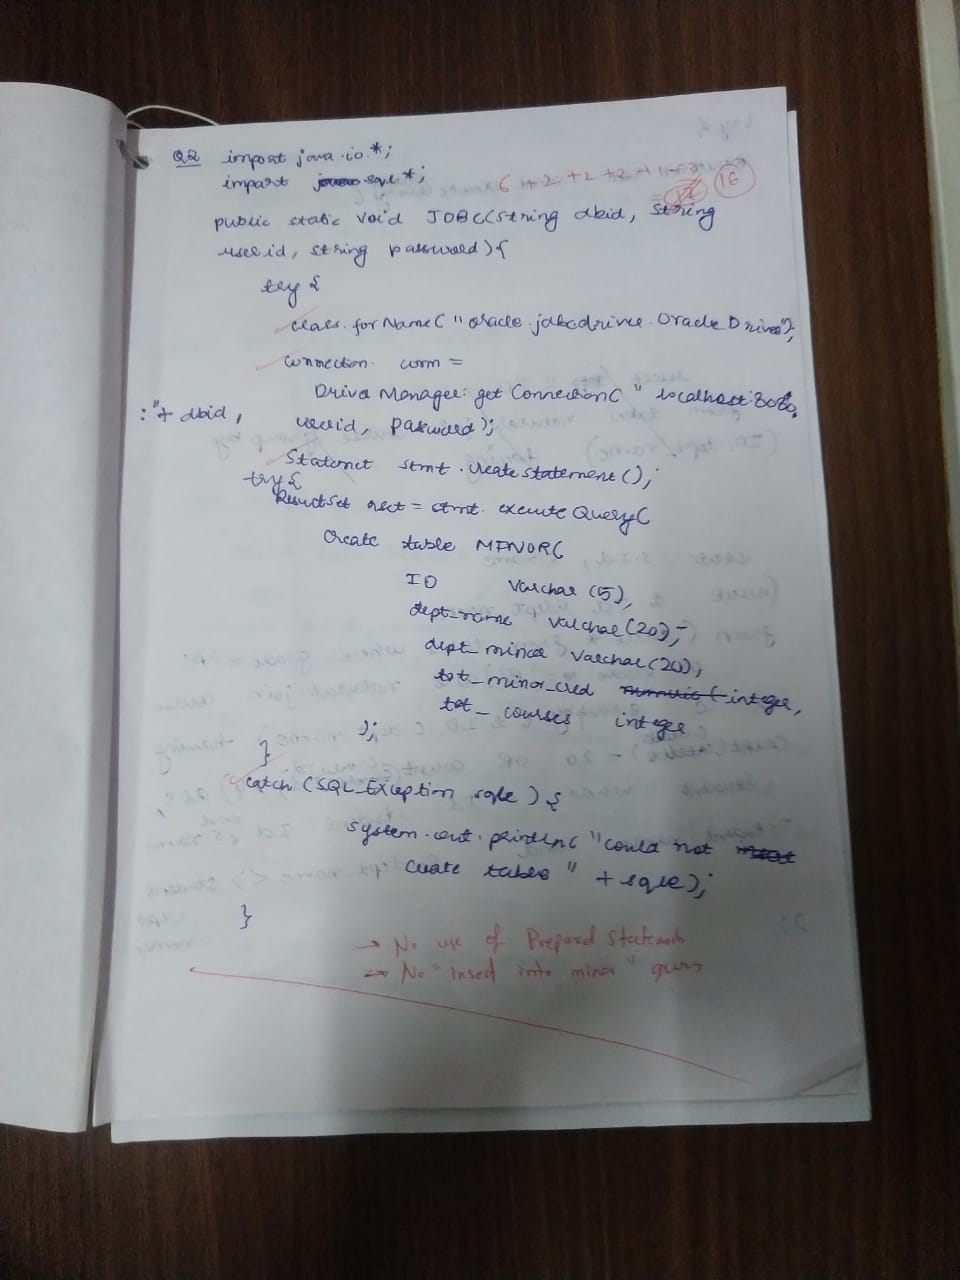 Q2 import java.io.*;
import sql*;
6 +2 +2 +2 +1 +3
= 16
public static void JDBC(string dbid, string
userid, string password){
try {
class.forName("oracle.jdbcdriver.OracleDriver");
connection. conn =
Driver Manager. get Connection( "localhost:8080,
:"+ dbid, userid, password);
Statemet stmt.createstatement();
try{
ResultSet rect = stmt. execute Query(
Create table MINOR(
ID varchar (5),
dept_name varchar(20),
dept_minor varchar(20),
tot_minor_cred integer,
tot_ courses integer
);
}
catch (SQL_Exception sqle ) {
system.out.println( "could not
create tables " + sqle);
}
→ No use of Prepared Statements
→ No "insert into minor" query